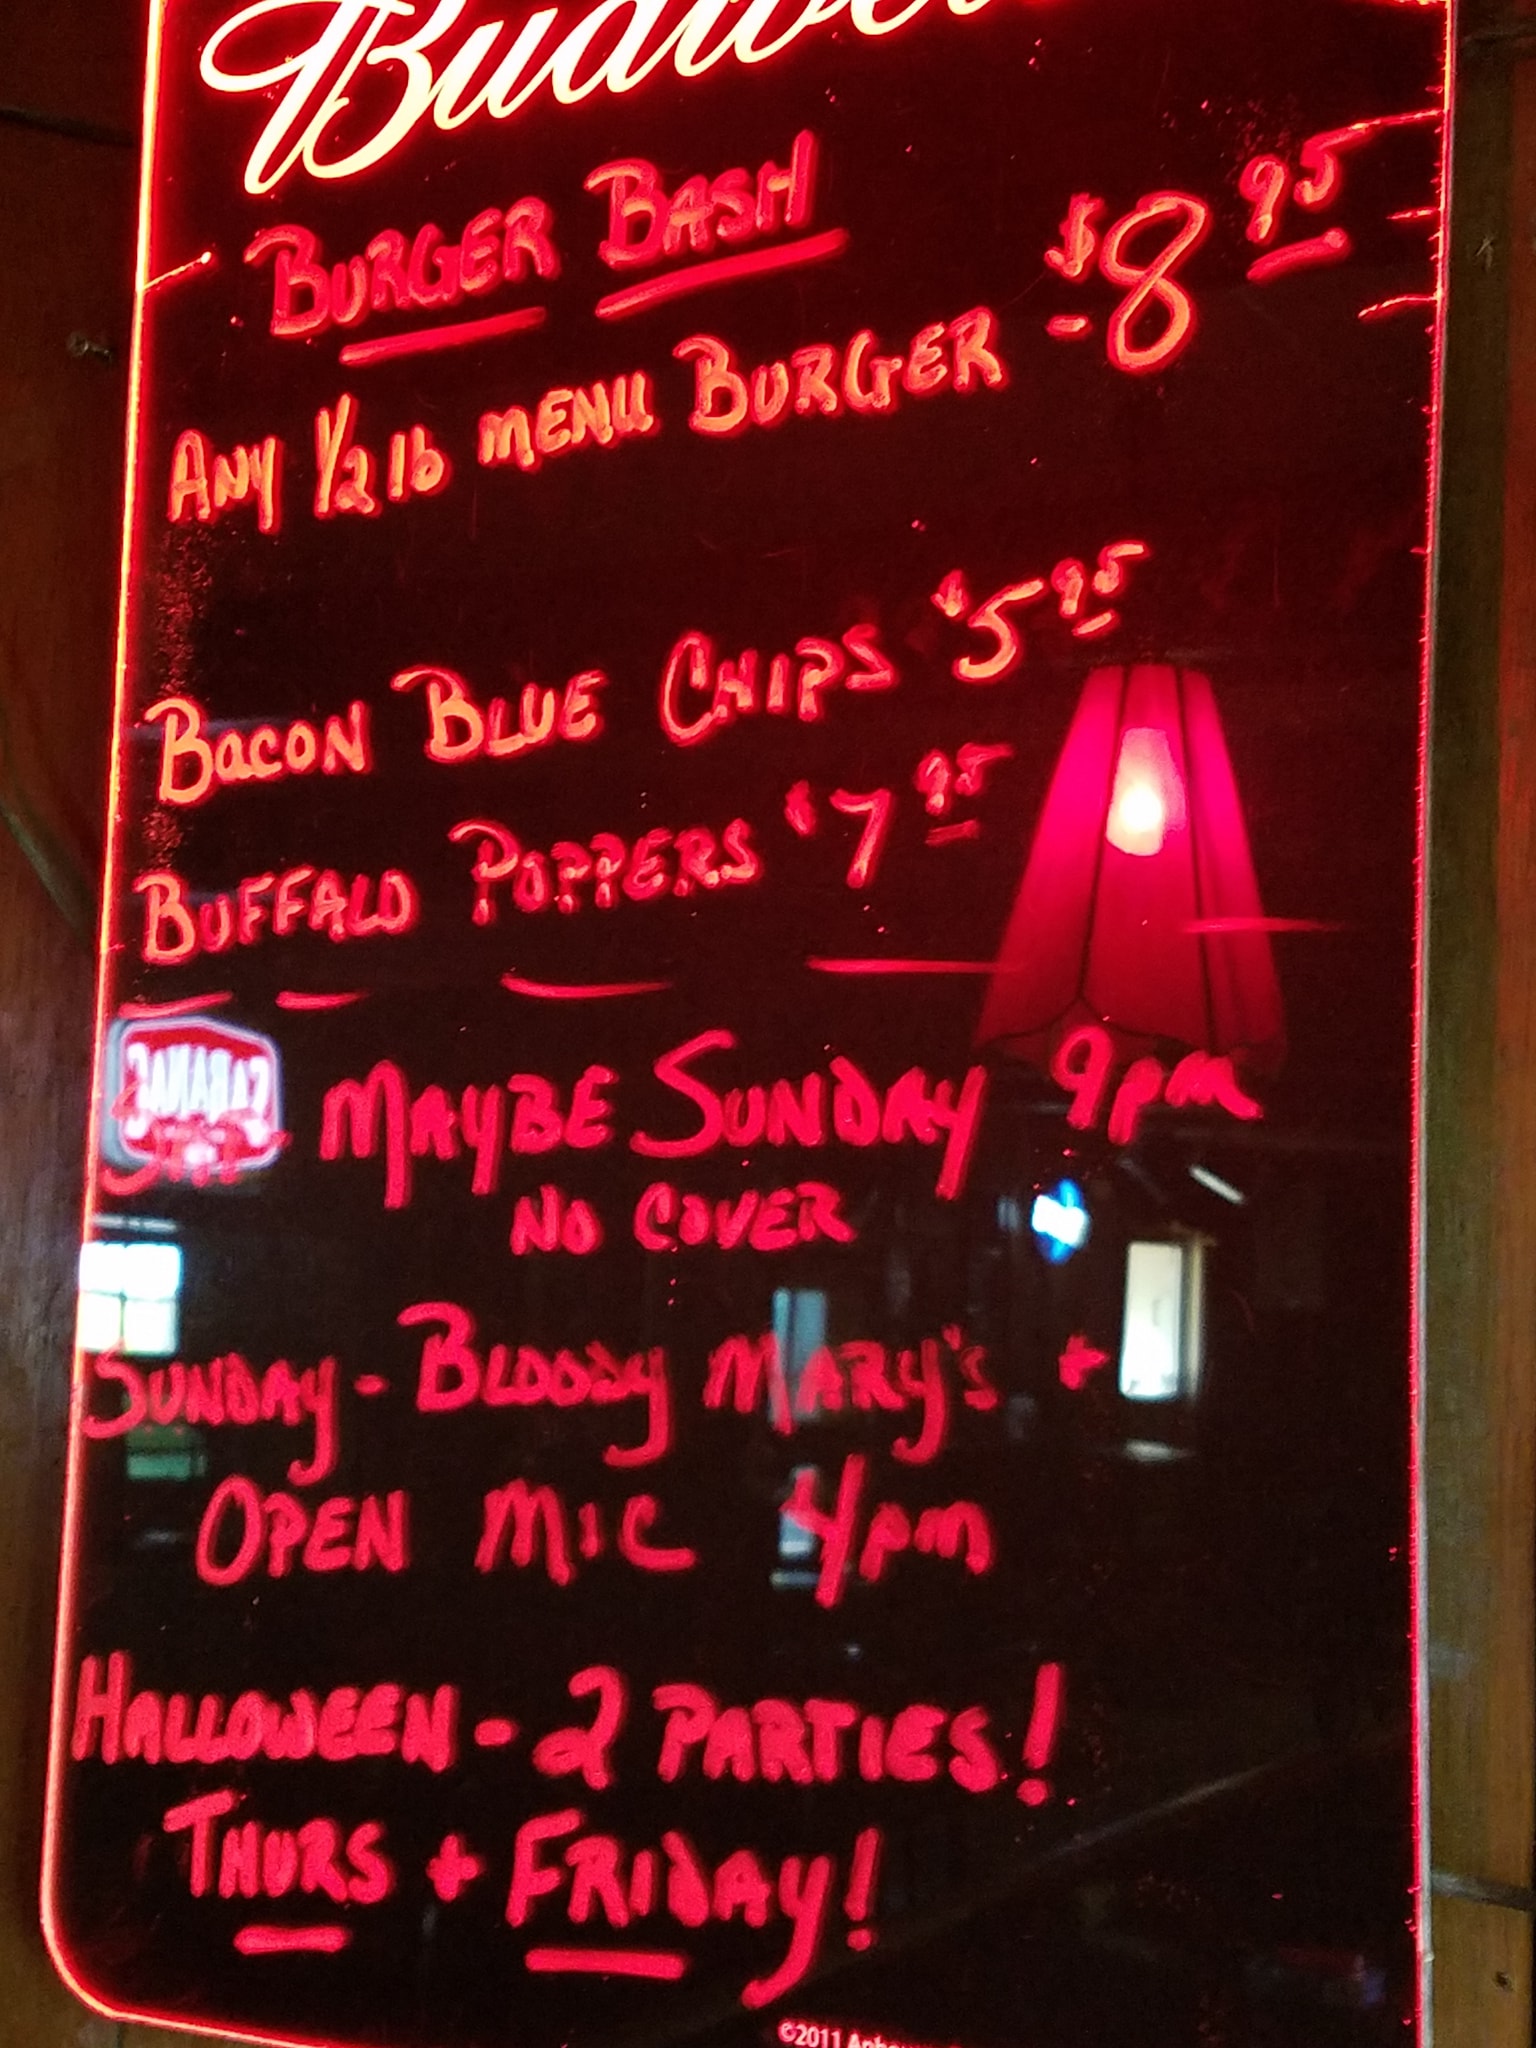 BURGER BASH
ANY 1/2 lb MENU BURGER - $8.95
BACON BLUE CHIPS $5.95
BUFFALO POPPERS $7.95
MAYBE SUNDAY 9pm
NO COVER
SUNDAY - BLOODY MARY'S +
OPEN MIC 4pm
HALLOWEEN - 2 PARTIES!
THURS + FRIDAY!
©2011